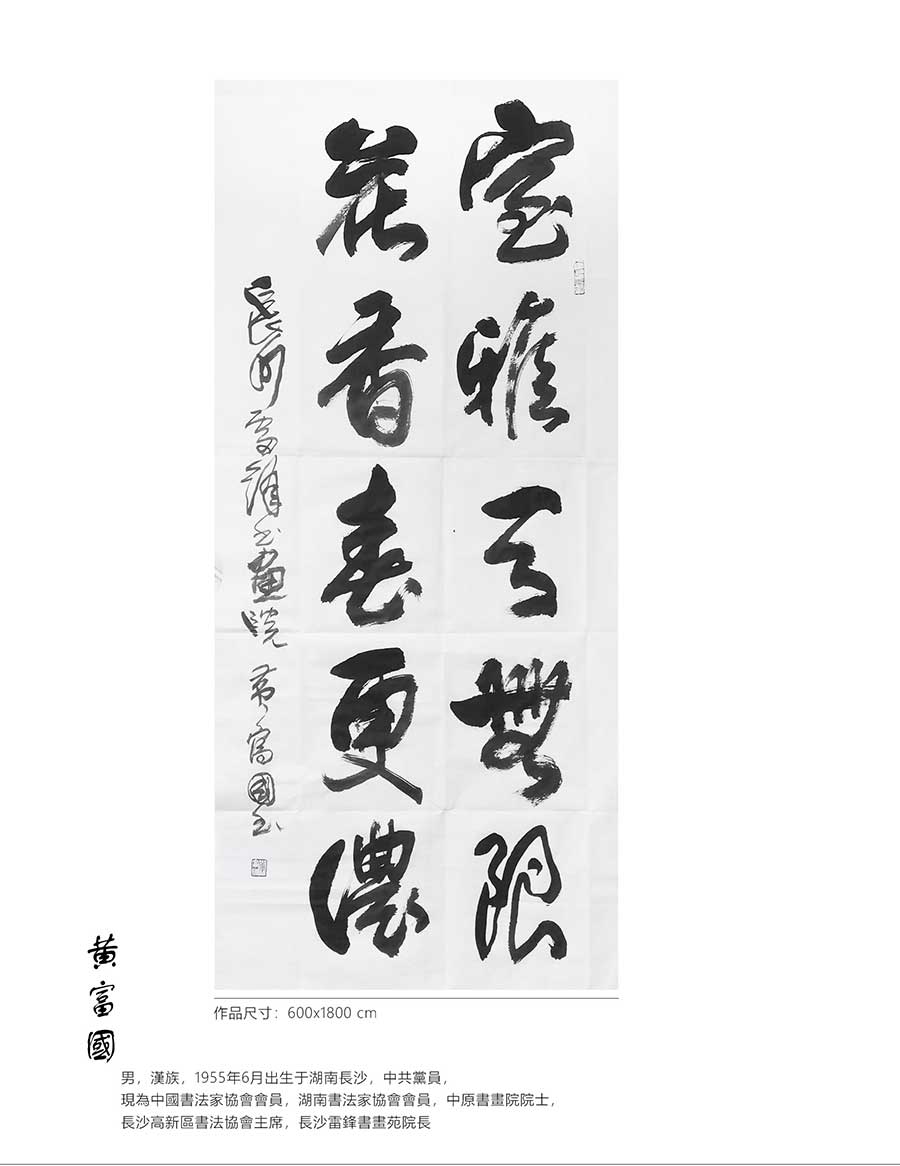 室雅無限
花香春更濃
長沙雷鋒书畫院 黄富國书
作品尺寸：600x1800 cm
黄富國
男，漢族，1955年6月出生于湖南長沙，中共黨員，
現為中國書法家協會會員，湖南書法家協會會員，中原書畫院院士，
長沙高新區書法協會主席，長沙雷鋒書畫苑院長